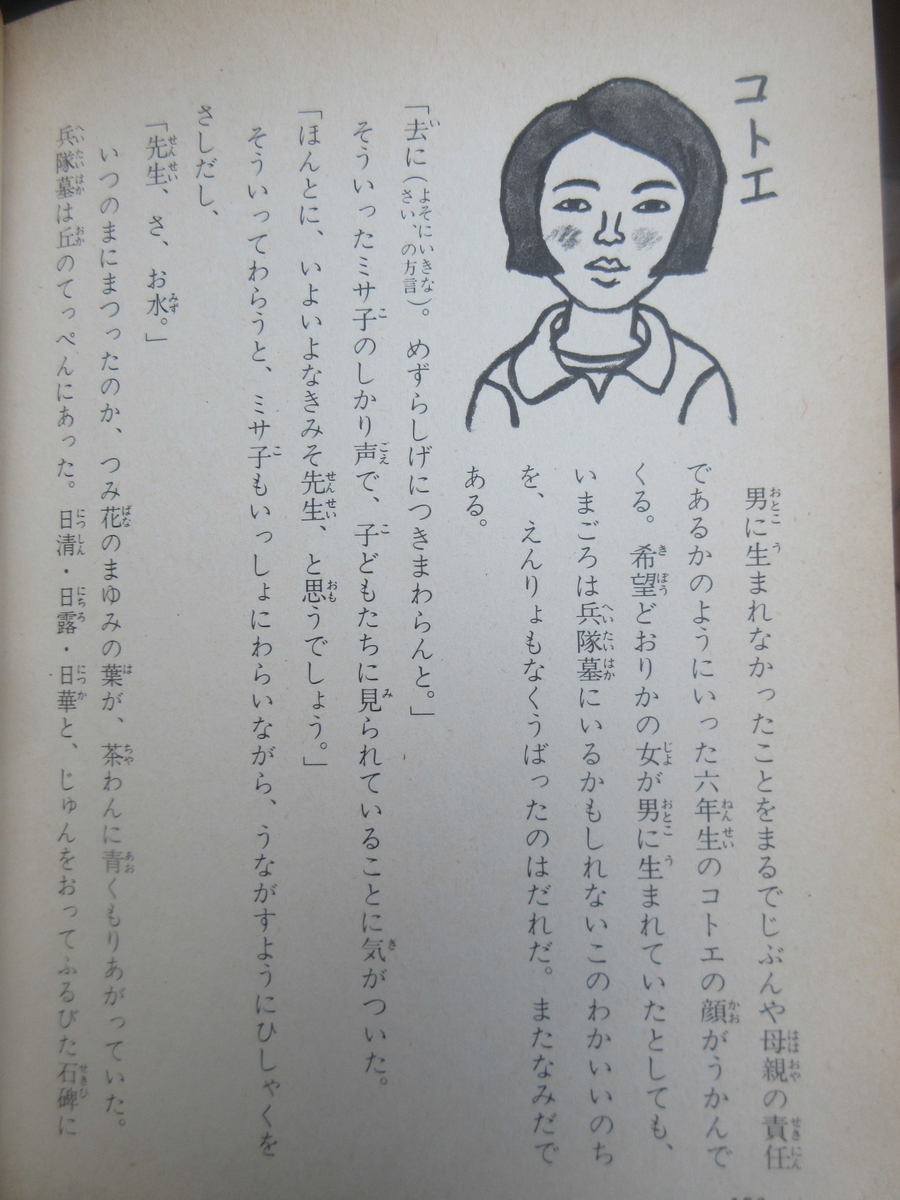 コトエ
男に生まれなかったことをまるでじぶんや母親の責任
であるかのようにいった六年生のコトエの顔がうかんで
くる。希望どおりかの女が男に生まれていたとしても、
いまごろは兵隊墓にいるかもしれないこのわかいいのち
を、えんりょもなくうばったのはだれだ。またなみだで
ある。
「去に（よそにいきなさい、の方言）。めずらしげにつきまわらんと。」
そういったミサ子のしかり声で、子どもたちに見られていることに気がついた。
「ほんとに、いよいよなきみそ先生、と思うでしょう。」
そういってわらうと、ミサ子もいっしょにわらいながら、うながすようにひしゃくを
さしだし、
「先生、さ、お水。」
いつのまにまつったのか、つみ花のまゆみの葉が、茶わんに青くもりあがっていた。
兵隊墓は丘のてっぺんにあった。日清・日露・日華と、じゅんをおってふるびた石碑に